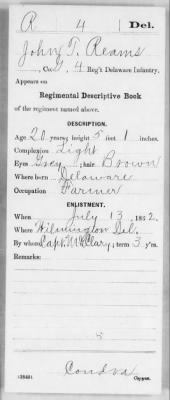 R 4 Del.
John T. Reams
, Co. , 4 Reg't Delaware Infantry.
Appears on
Regimental Descriptive Book
of the regiment named above.
DESCRIPTION.
Age 20 years; height 5 feet 1 inches.
Complexion Light
Eyes Grey; hair Brown
Where born Delaware
Occupation Farmer
ENLISTMENT.
When July 13, 1862.
Where Wilmington Del.
By whom Capt. McClary; term 3 y'rs.
Remarks:
Condva
Copyist.